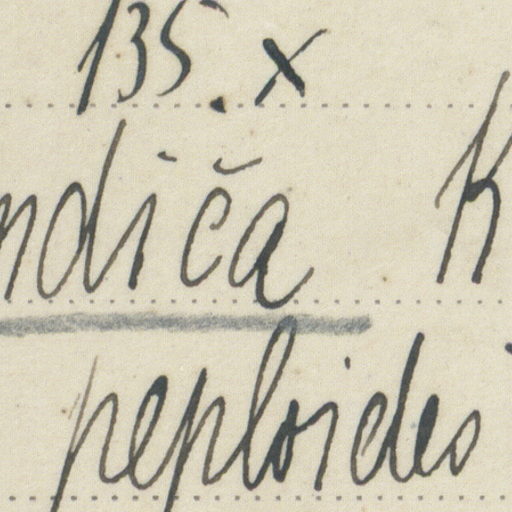 135. x
ndiča K
peploides